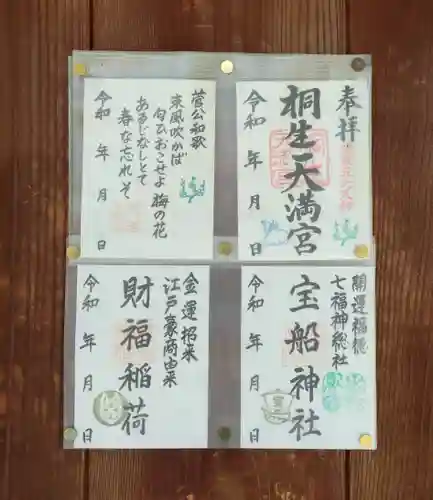 奉拝
桐生天満宮
令和 年 月 日
菅公和歌
東風吹かば
匂ひおこせよ 梅の花
あるじなしとて
春な忘れそ
令和 年 月 日
開運福徳
七福神総社
宝船神社
令和 年 月 日
金運招来
江戸豪商由来
財福稲荷
令和 年 月 日